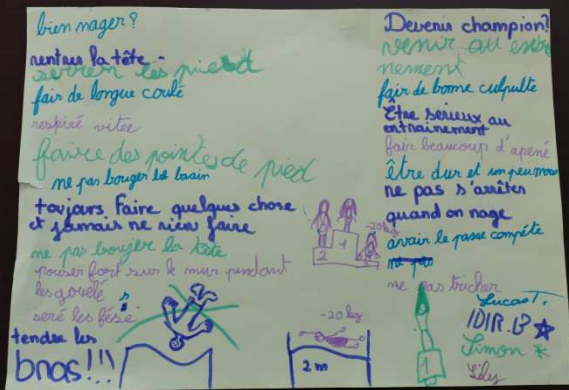 bien nager?
rentrer la tête -
serrer les pied
fair de longue coulé
respiré vitee
faire des pointes de pied
ne pas bouger le bassin
toujours faire quelques chose
et jamais ne rien faire
ne pas bouger la tête
pouser fort sur le mur pendant
les gouélé
s
seré les fése
tendre les
bras!!!
Devenir champion?
venir au entre
nement
fair de bonne culpulte
Être serieux au
entrainement
fair beaucoup d'apené
être dur et un peu mou
ne pas s'arrêter
quand on nage
avoir le passe compéte
ne pas
ne pas tricher
Lucas T.
IDIR.B
Simon
Lily
-20kg
2 1
-20 kg
2 m
1